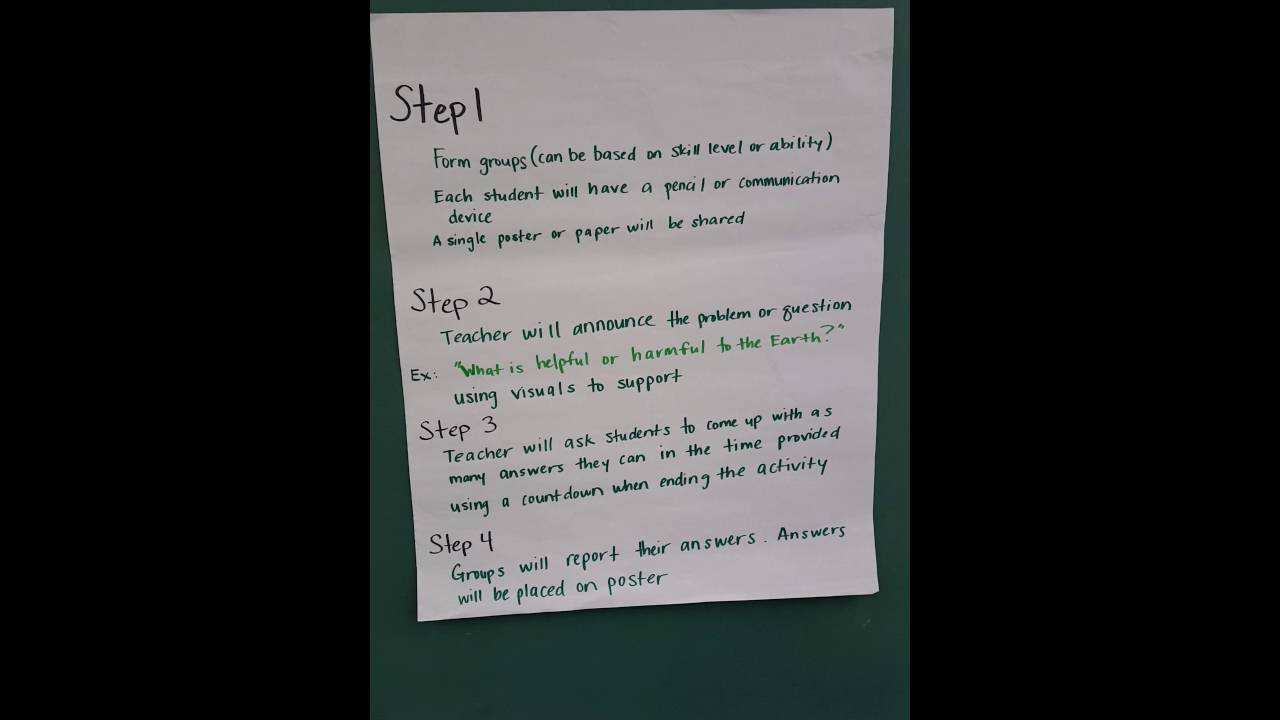 Step 1
Form groups (can be based on skill level or ability)
Each student will have a pencil or communication
device
A single poster or paper will be shared
Step 2
Teacher will announce the problem or question
Ex: "What is helpful or harmful to the Earth?"
using visuals to support
Step 3
Teacher will ask students to come up with as
many answers they can in the time provided
using a countdown when ending the activity
Step 4
Groups will report their answers. Answers
will be placed on poster